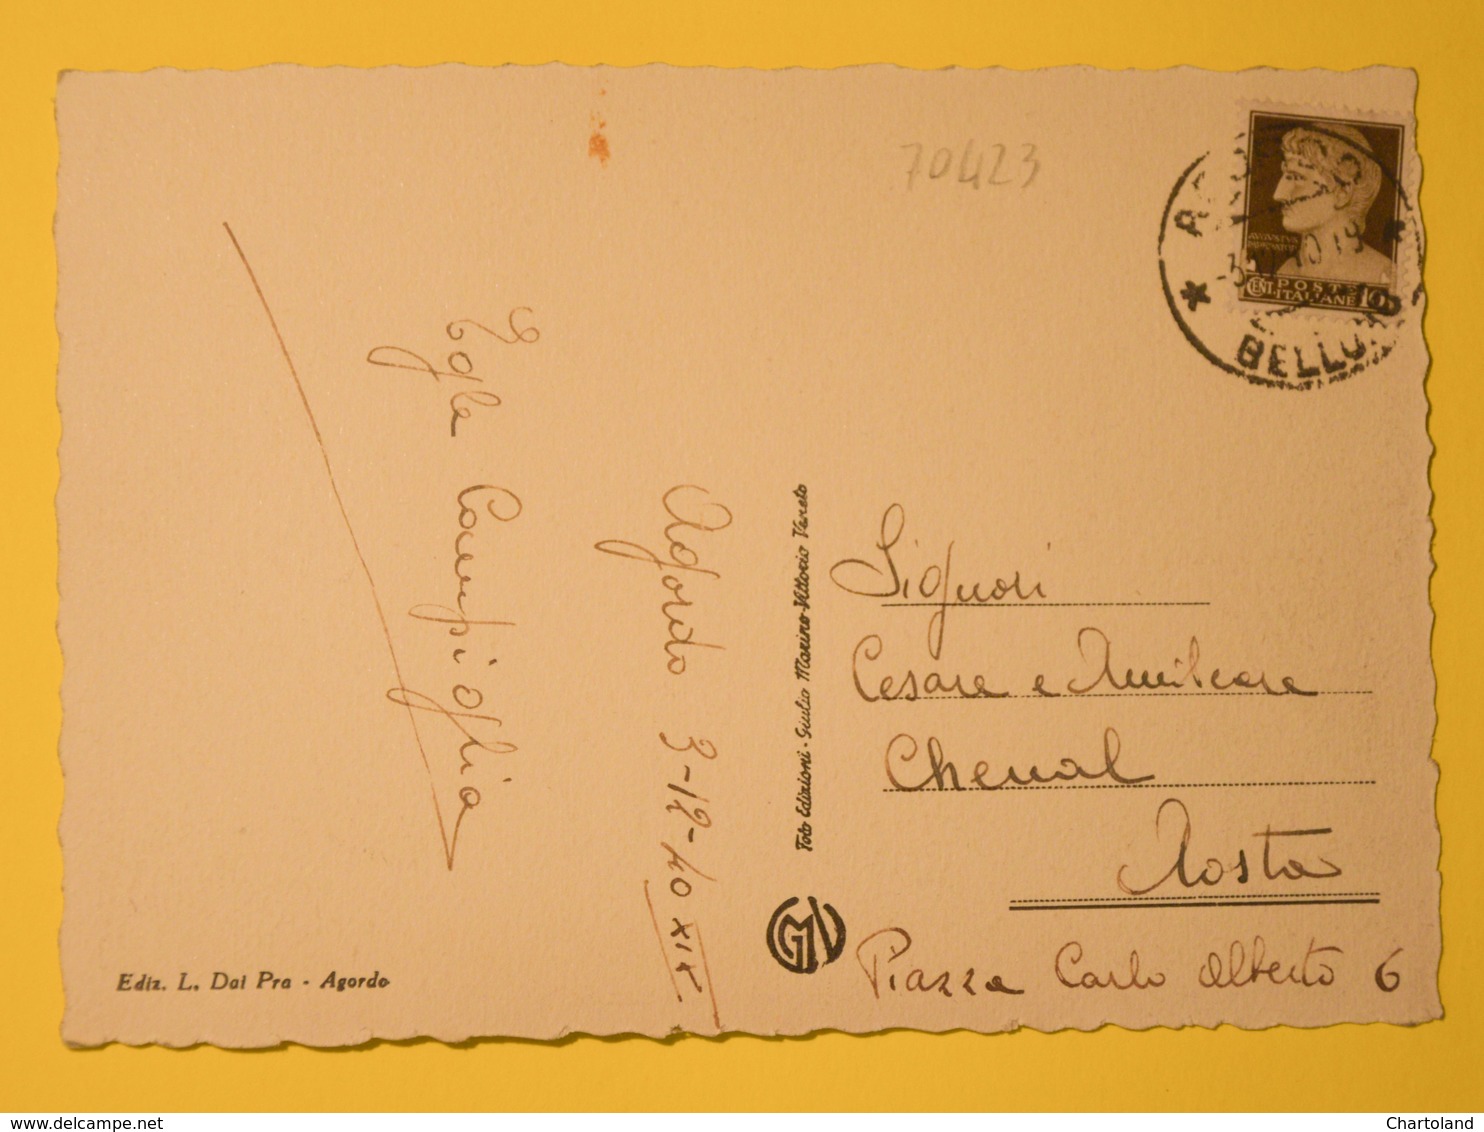 70423
AGORDO
BELLUNO
AVGVSTVS
IMPERATOR
CENT. POSTE ITALIANE 10
Egle Campioglia
Agordo 3-12-40 XIX
Foto Edizioni - Giulio Marino - Vittorio Veneto
GMV
Signori
Cesare e Amilcare
Chenal
Aosta
Piazza Carlo Alberto 6
Ediz. L. Dai Pra - Agordo
delcampe.net
Chartoland